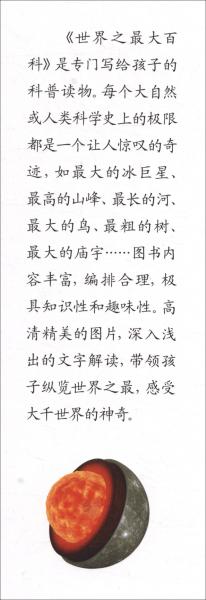 《世界之最大百
科》是专门写给孩子的
科普读物。每个大自然
或人类科学史上的极限
都是一个让人惊叹的奇
迹，如最大的冰巨星、
最高的山峰、最长的河、
最大的鸟、最粗的树、
最大的庙宇……图书内
容丰富，编排合理，极
具知识性和趣味性。高
清精美的图片，深入浅
出的文字解读，带领孩
子纵览世界之最，感受
大千世界的神奇。